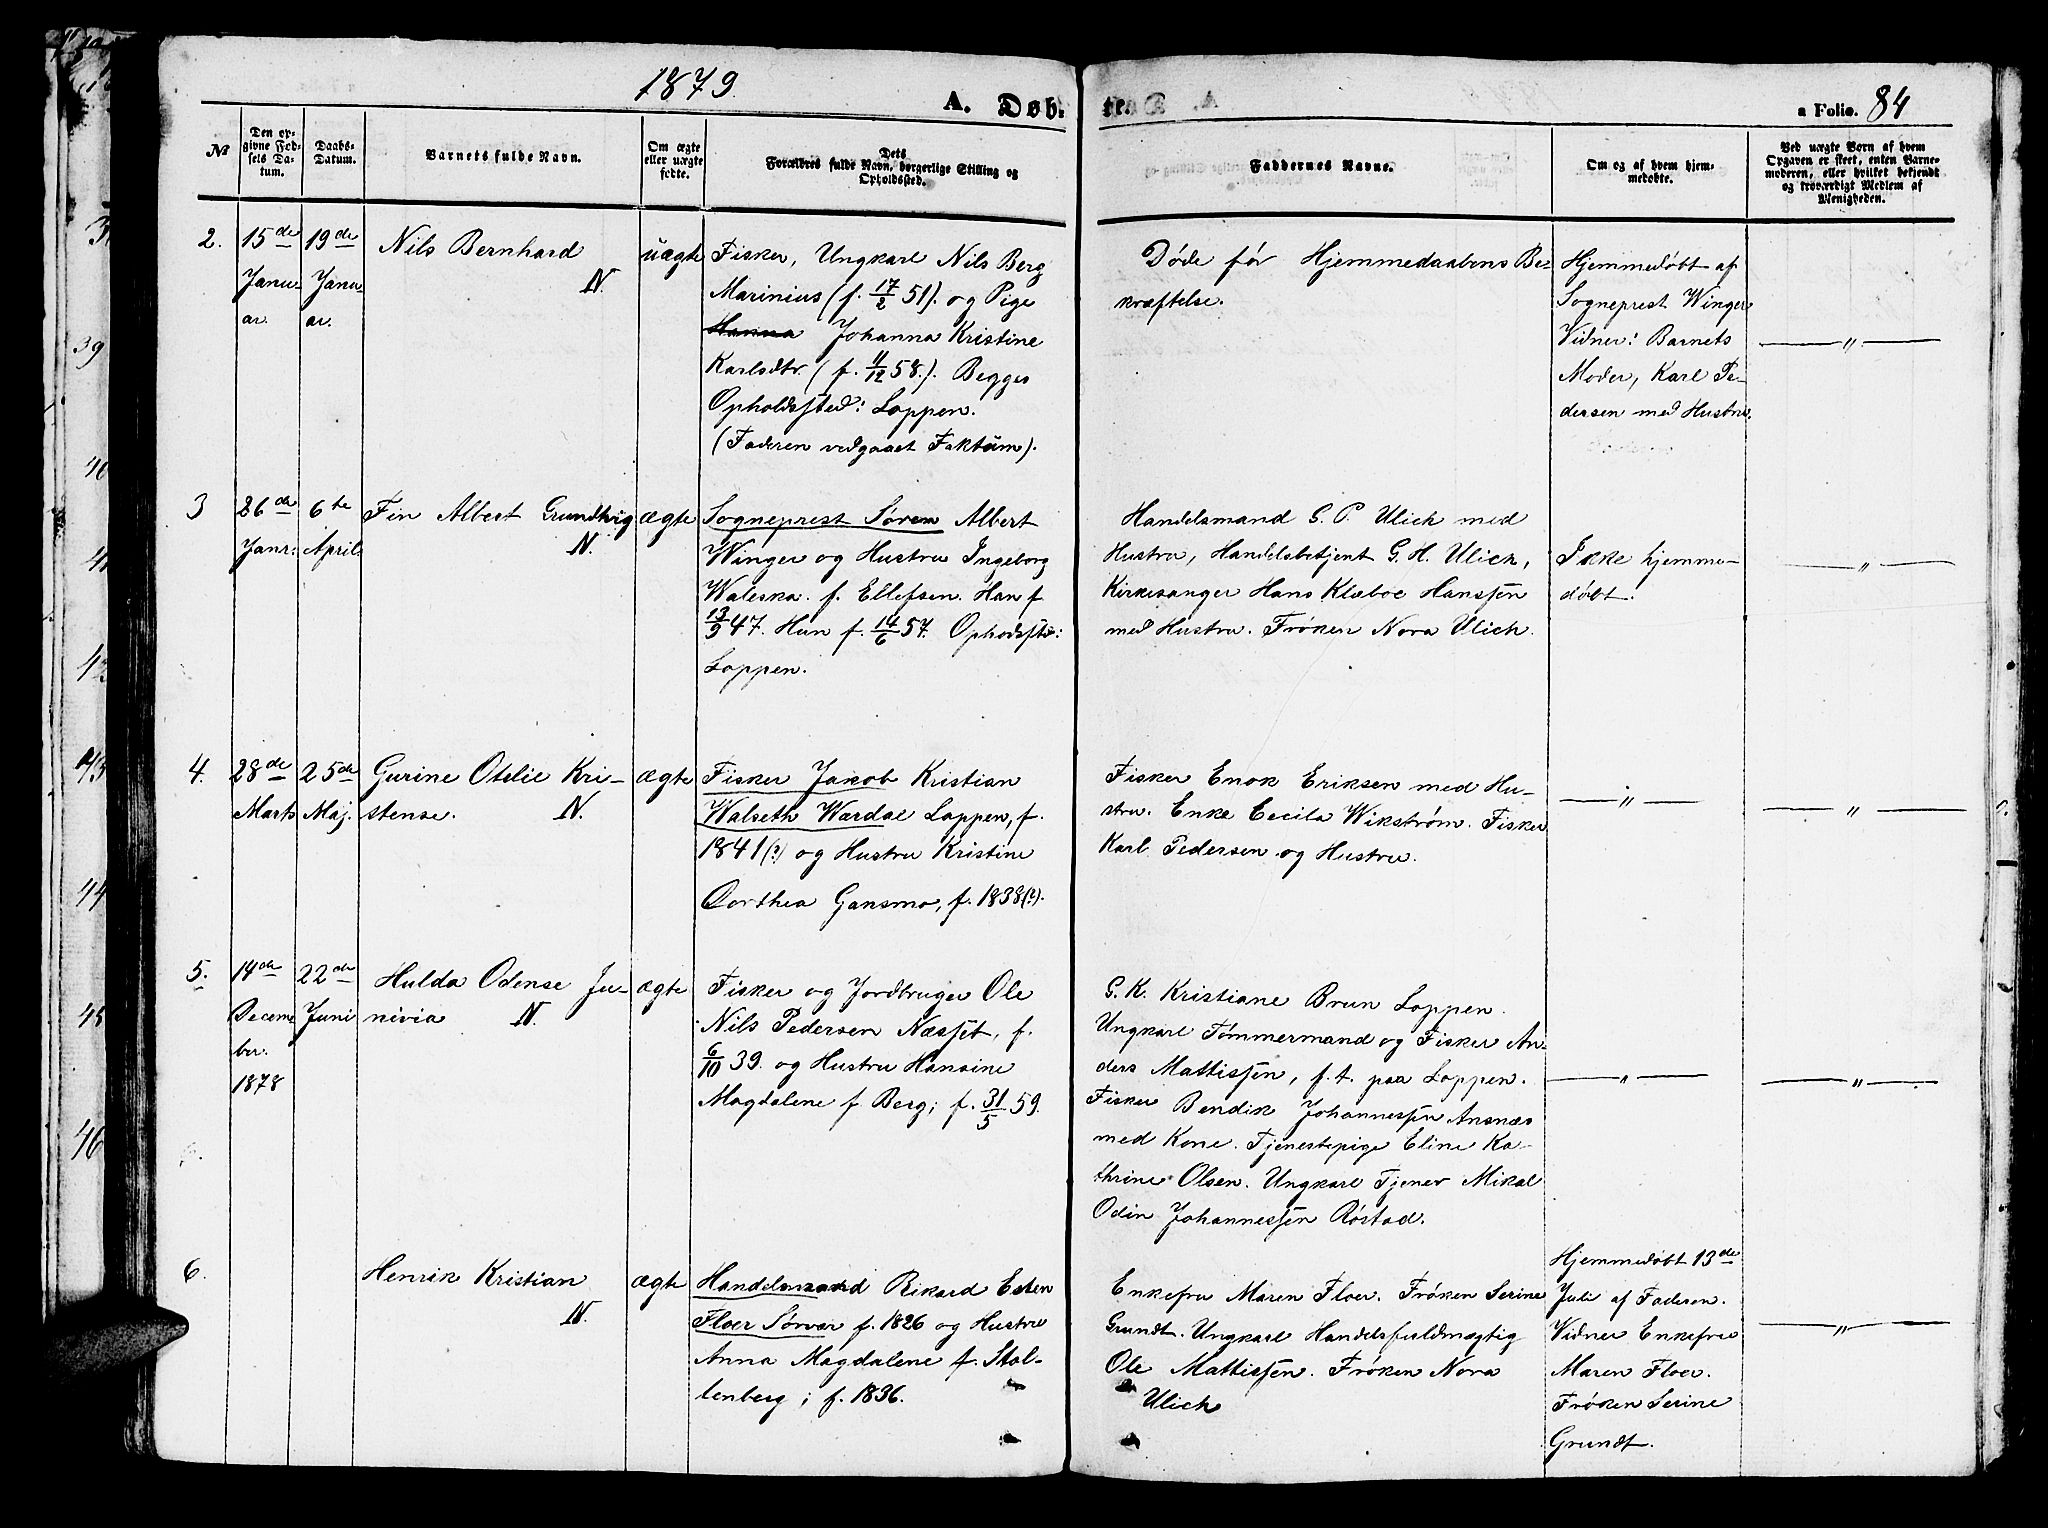 1879.
A. Døb-
te.
a Folio. 84
№
Den op-
givne Fød-
sels Da-
tum.
Daabs-
Datum.
Barnets fulde Navn.
Om ægte
eller uægte
fødte.
Dets
Forældres fulde Navn, borgerlige Stilling og
Opholdssted.
Faddernes Navne.
Om og af hvem hjem-
medøbte.
Ved uægte Børn af hvem
Opgaven er skeet, enten Barne-
moderen, eller hvilket bekjendt
og troværdigt Medlem af
Menigheden.
2.
15de
Janu-
ar.
19de
Janu-
ar.
Nils Bernhard
N.
uægte
Fisker, Ungkarl Nils Berg
Marinius (f. 17/2 51). og Pige
Hanna Johanna Kristine
Karlsdtr. (f. 4/12 58.). Begges
Opholdssted: Loppen.
(Faderen vedgaaet Faktum).
Døde før Hjemmedaabens Be-
kræftelse.
Hjemmedøbt af
Sogneprest Winger
Vidner: Barnets
Moder, Karl Pe-
dersen med Hustru.
— " —
3
26de
Janr:
6te
April
Fin Albert Grundtvig
N.
ægte
Sogneprest Søren Albert
Winger og Hustru Ingeborg
Waleska. f. Ellefsen. Han f.
13/9 47. Hun f. 14/6 57. Ophodsstd:
Loppen.
Handelsmand G. P. Ulich med
Hustru, Handelsbetjent G. H. Ulich,
Kirkesanger Hans Klæboe Hanssen
med Hustru. Frøken Nora Ulich.
Ikke hjemme-
døbt.
— " —
4.
28de
Marts
25de
Maj.
Gurine Otelie Kri-
stense.
N.
ægte
Fisker Jakob Kristian
Walseth Wærdal Loppen, f.
1841(?) og Hustru Kristine
Dorthea Gansmo, f. 1838(?).
Fisker Enok Eriksen med Hu-
stru. Enke Cecila Wikstrøm. Fisker
Karl Pedersen og Hustru.
— " —
— " —
5.
14de
Decem-
ber.
1878
22de
Juni
Hulda Odense Ju-
nivia
N.
ægte
Fisker og Jordbruger Ole
Nils Pedersen Næsset, f.
6/10 39. og Hustru Hansine
Magdalene f. Berg; f. 31/5 59.
G. K. Kristiane Brun Loppen.
Ungkarl Tømmermand og Fisker An-
ders Mattissen, f. t. paa Loppen.
Fisker Bendik Johannessen Ansnæs
med Kone. Tjenestepige Eline Ka-
thrine Olsen. Ungkarl Tjener Mikal
Odin Johannessen Røstad.
— " —
— " —
6.
Henrik Kristian
N.
ægte
Handelsmand Rikard Esten
Floer Sørvær f. 1826 og Hustru
Anna Magdalene f. Stol-
tenberg; f. 1836.
Enkefru Maren Floer. Frøken Serine
Grundt. Ungkarl Handelsfuldmægtig
Ole Mattissen. Frøken Nora
Ulich
Hjemmedøbt 13de
Juli af Faderen.
Vidner Enkefru
Maren Floer.
Frøken Serine
Grundt.
— " —
39
40
41
43
44
45
46